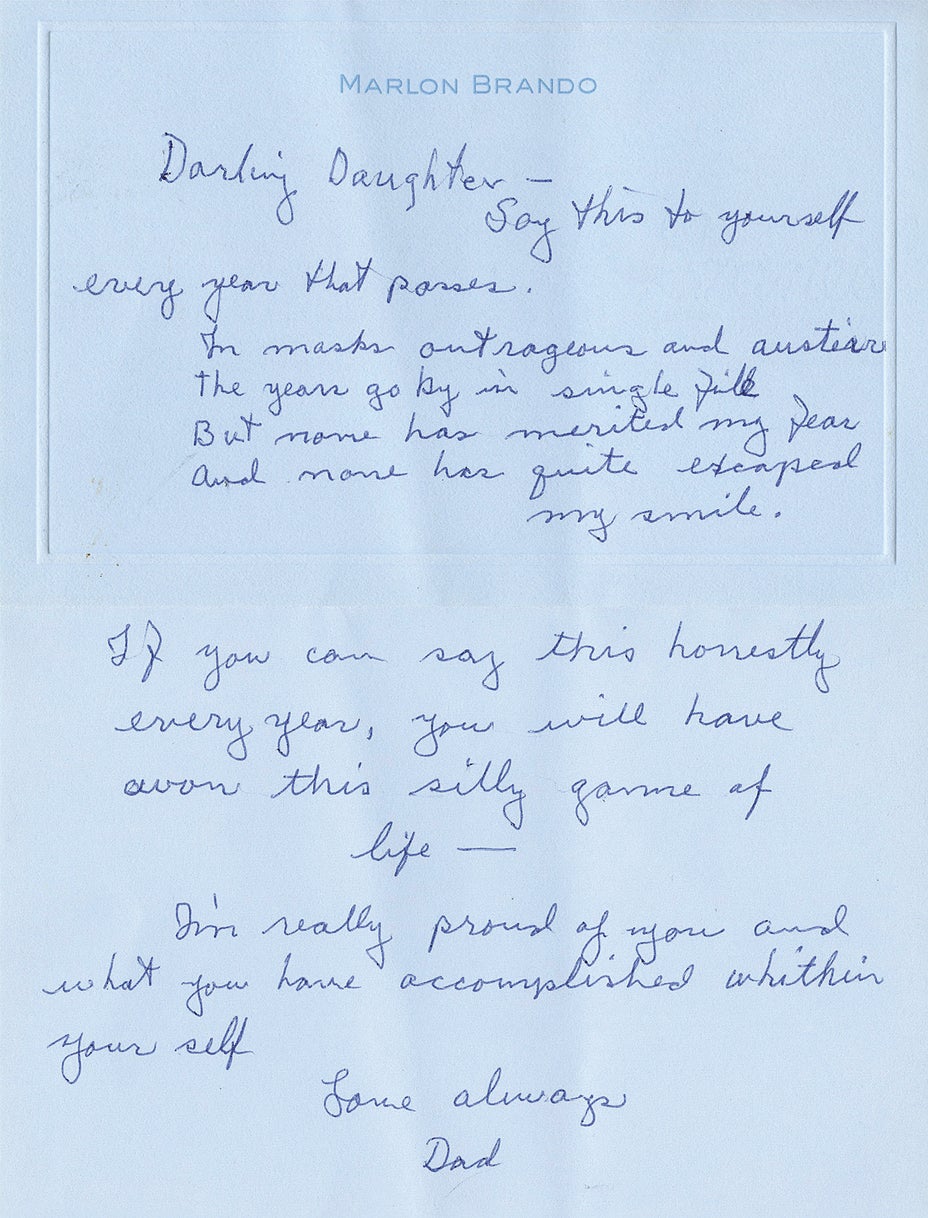 MARLON BRANDO
Darling Daughter —
Say this to yourself
every year that passes.
In masks outrageous and austere
the years go by in single file
But none has merited my fear
And none has quite escaped
my smile.
If you can say this honestly
every year, you will have
won this silly game of
life —
I'm really proud of you and
what you have accomplished whithin
your self
Love always
Dad